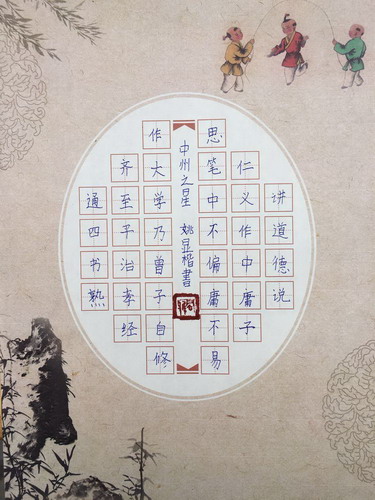 讲道德说
仁义作中庸子
思笔中不偏庸不易
中州之星 姚显楷書
作大学乃曾子自修
齐至平治孝经
通四书熟